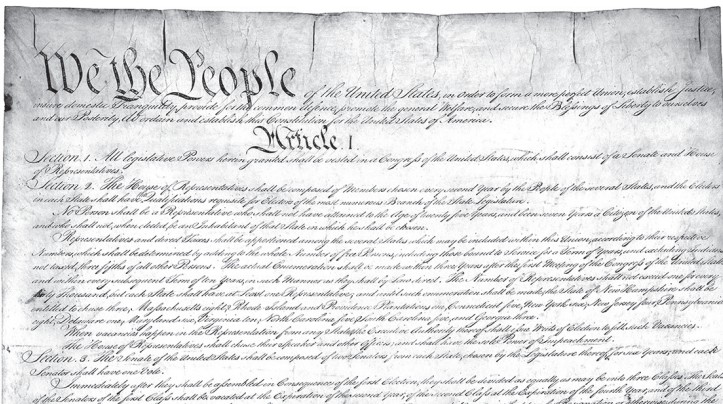 We the People of the United States, in Order to form a more perfect Union, establish Justice,
insure domestic Tranquility, provide for the common defence, promote the general Welfare, and secure the Blessings of Liberty to ourselves
and our Posterity, do ordain and establish this Constitution for the United States of America.
Article I.
Section 1. All legislative Powers herein granted shall be vested in a Congress of the United States, which shall consist of a Senate and House
of Representatives.
Section 2. The House of Representatives shall be composed of Members chosen every second Year by the People of the several States, and the Electors
in each State shall have Qualifications requisite for Electors of the most numerous Branch of the State Legislature.
No Person shall be a Representative who shall not have attained to the Age of twenty five Years, and been seven Years a Citizen of the United States,
and who shall not, when elected, be an Inhabitant of that State in which he shall be chosen.
Representatives and direct Taxes shall be apportioned among the several States which may be included within this Union, according to their respective
Numbers, which shall be determined by adding to the whole Number of free Persons, including those bound to Service for a Term of Years, and excluding Indians
not taxed, three fifths of all other Persons. The actual Enumeration shall be made within three Years after the first Meeting of the Congress of the United States,
and within every subsequent Term of ten Years, in such Manner as they shall by Law direct. The Number of Representatives shall not exceed one for every
thirty Thousand, but each State shall have at Least one Representative; and until such enumeration shall be made, the State of New Hampshire shall be
entitled to chuse three, Massachusetts eight, Rhode Island and Providence Plantations one, Connecticut five, New York six, New Jersey four, Pennsylvania
eight, Delaware one, Maryland six, Virginia ten, North Carolina five, South Carolina five, and Georgia three.
When vacancies happen in the Representation from any State, the Executive Authority thereof shall issue Writs of Election to fill such Vacancies.
The House of Representatives shall chuse their Speaker and other Officers; and shall have the sole Power of Impeachment.
Section 3. The Senate of the United States shall be composed of two Senators from each State, chosen by the Legislature thereof, for six Years; and each
Senator shall have one Vote.
Immediately after they shall be assembled in Consequence of the first Election, they shall be divided as equally as may be into three Classes. The Seats
of the Senators of the first Class shall be vacated at the Expiration of the second Year, of the second Class at the Expiration of the fourth Year, and of the third